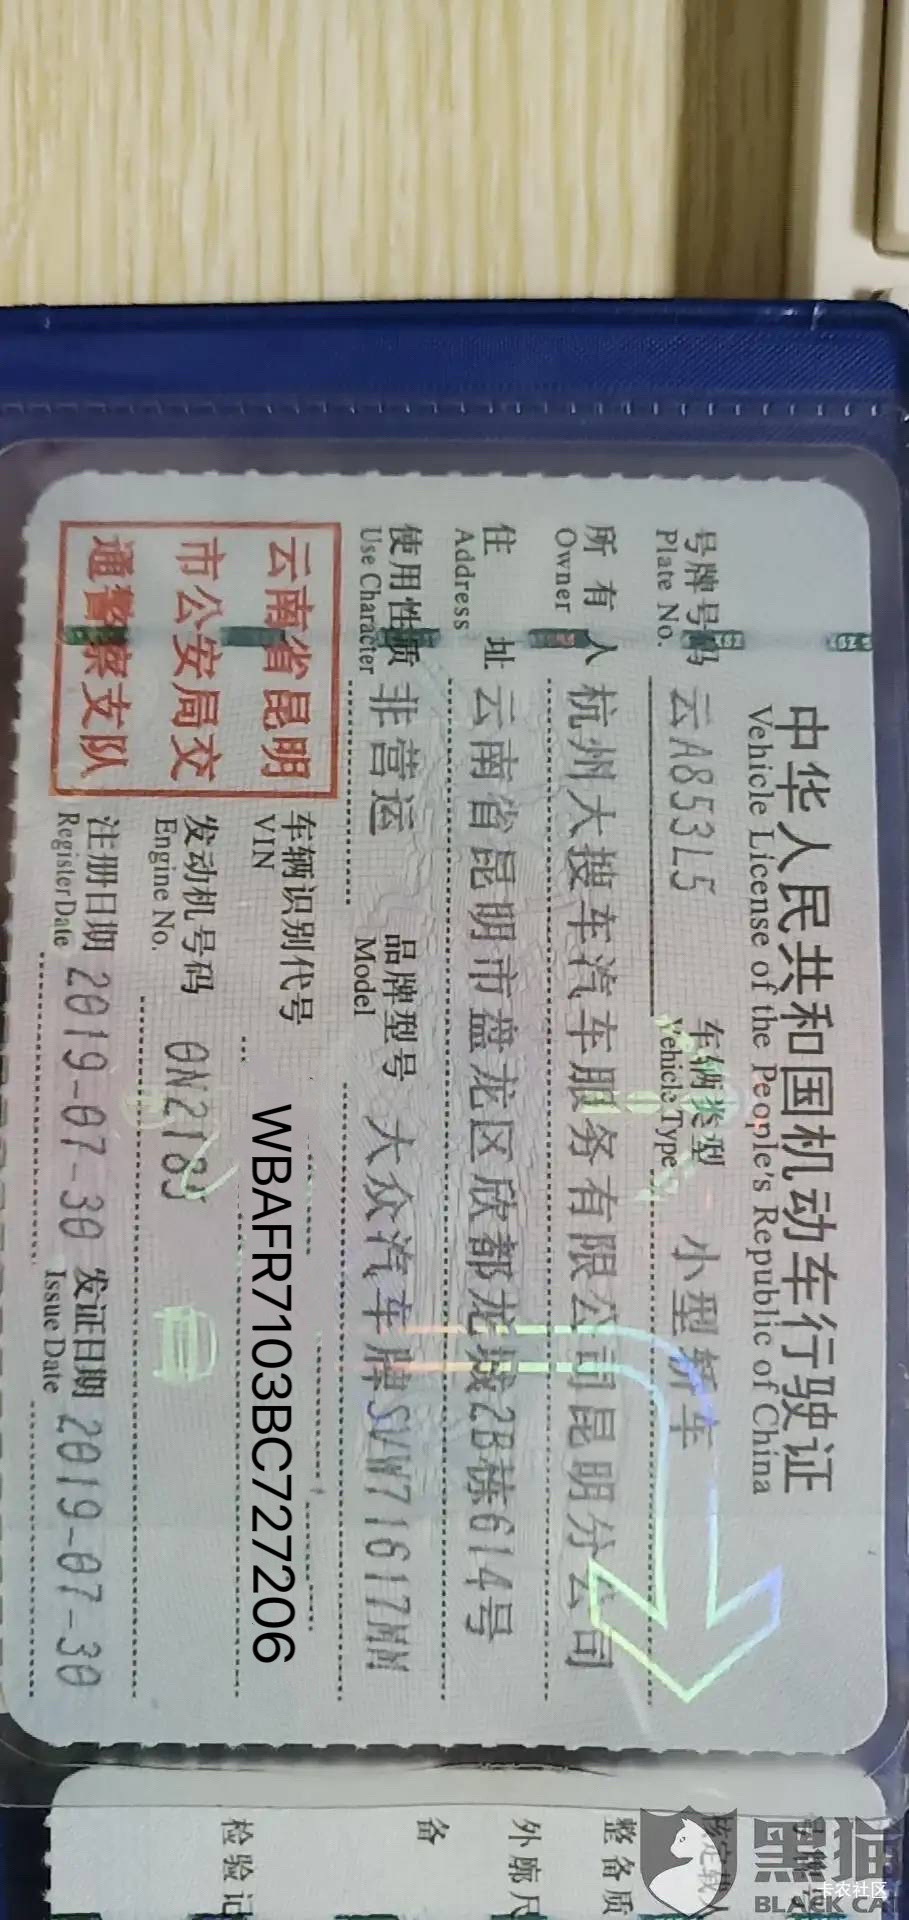 中华人民共和国机动车行驶证
Vehicle License of the People's Republic of China
号牌号码 云A853L5 车辆类型 小型轿车
Plate No. Vehicle Type
所有人 杭州大搜车汽车服务有限公司昆明分公司
Owner
住址 云南省昆明市盘龙区欣都龙城2B栋614号
Address
使用性质 非营运 品牌型号 大众汽车牌SVW71617MM
Use Character Model
云南省昆明
市公安局交
通警察支队
车辆识别代号 WBAFR7103BC727206
VIN
发动机号码
Engine No.
注册日期 2019-07-30 发证日期 2019-07-30
Register Date Issue Date
整备质
外廓尺
备
检验记
黑猫
BLACK CA
卡农社区